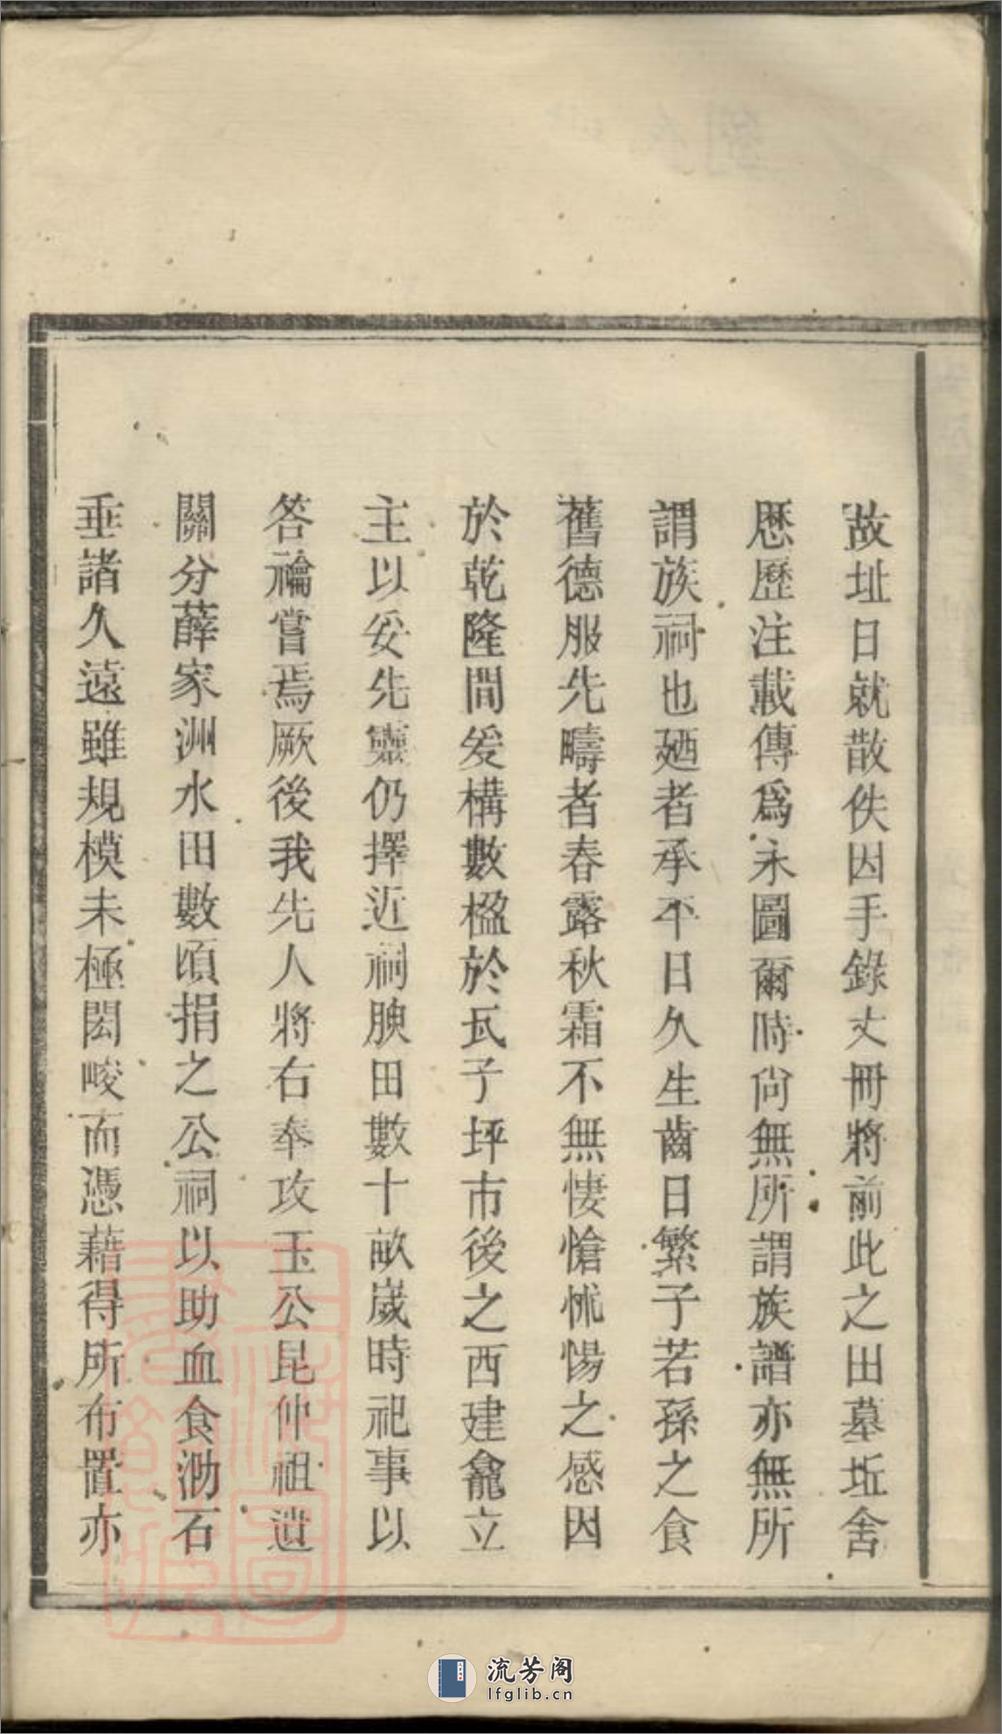 故址日就散佚因手錄丈冊將前此之田墓坵舍
歷歷注載傳爲永圖爾時尙無所謂族譜亦無所
謂族祠也廼者承平日久生齒日繁子若孫之食
舊德服先疇者春露秋霜不無悽愴怵惕之感因
於乾隆間爰構數楹於瓦子坪市後之西建龕立
主以妥先靈仍擇近祠腴田數十畝歲時祀事以
答禴嘗焉厥後我先人將右奉攻玉公昆仲祖遺
關分薛家洲水田數頃捐之公祠以助血食泐石
垂諸久遠雖規模未極閎峻而憑藉得所布置亦
流芳阁
lfglib.cn